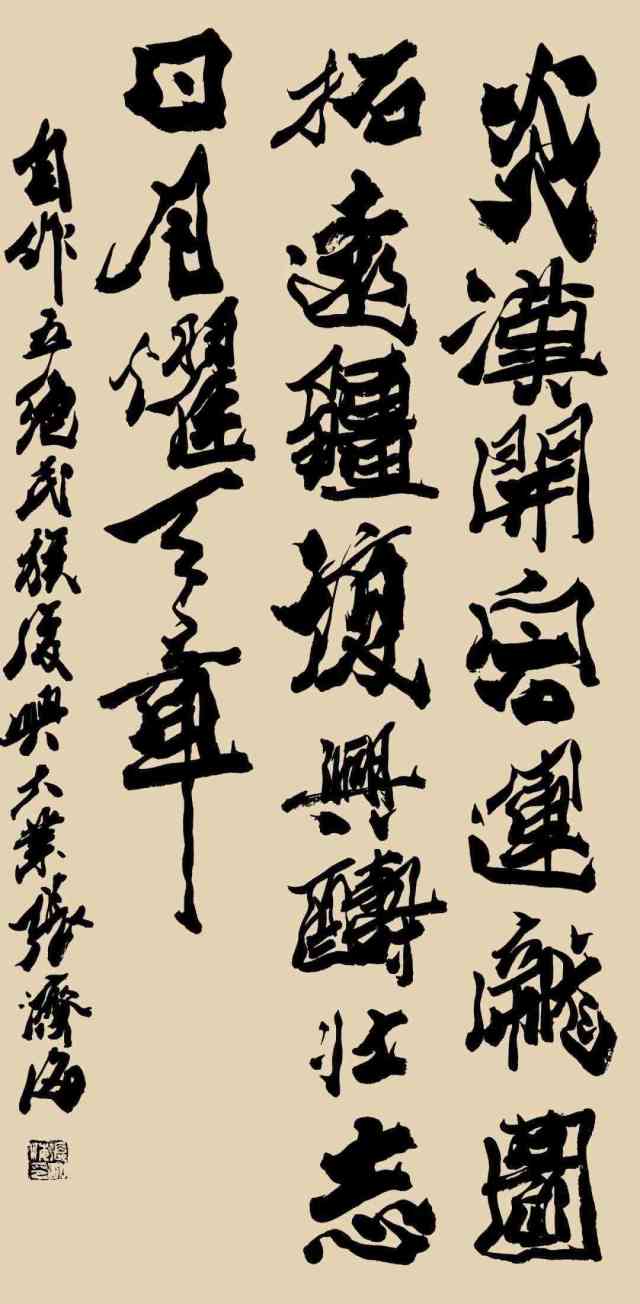 炎漢開運龍圖
拓遠疆復興酬壯志
日月耀天章
自作五絕民族復興大業張濟海